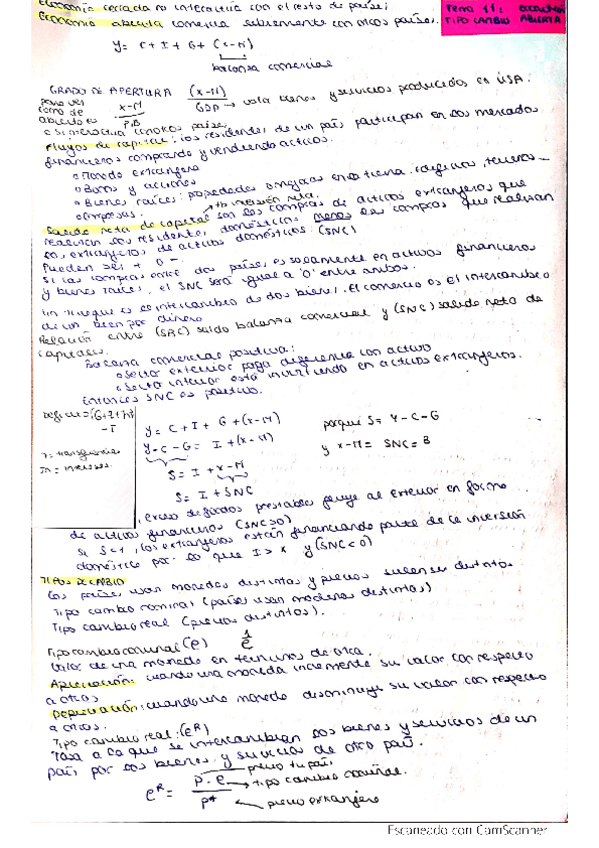 Economía cerrada no interactua con el resto de países
Economía abierta comercia libremente con otros países.
Tema 11: economía
TIPO CAMBIO ABIERTA
Y = C + I + G + (X-M)
balanza comercial
GRADO DE APERTURA (X-M)
para ver
como de
abierto es
X-M
PIB
bienes y servicios producidos en USA.
o si interactua con otros países
Flujos de capital: los residentes de un país participan en los mercados
financieros comprando y vendiendo activos.
o Moneda extranjera
o Bonos y acciones
o Bienes raíces: propiedades
o Empresas.
Salida neta de capital son las compras de activos extranjeros que
realizan los residentes domésticos menos las compras que realizan
los extranjeros de activos domésticos: (SNC)
Pueden ser + o -
Si las compras entre dos países es solamente en activos financieros
y bienes raíces, el SNC será igual a '0' entre ambos.
Un trueque es el intercambio de dos bienes. El comercio es el intercambio
de un bien por dinero
Relación entre saldo balanza comercial y (SNC) salida neta de
capitales.
Balanza comercial positiva:
o Sector exterior paga diferencia con activo
o Sector interior está invirtiendo en activos extranjeros.
Entonces SNC es positivo.
- T
Y = C + I + G + (X-M)
Y - C - G = I + (X-M)
S = I + X-M
S = I + SNC
porque S = Y - C - G
y X-M = SNC = B
exceso de fondos prestables fluye al exterior en forma
de activos financieros (SNC>0)
Si S<I, los extranjeros están financiando parte de la inversión
doméstica por lo que y (SNC<0)
TIPOS DE CAMBIO
Los países usan monedas distintas y precios suelen ser distintos
Tipo cambio nominal (países usan monedas distintas)
Tipo cambio real (precios distintos).
Tipo cambio nominal (e)
Valor de una moneda en términos de otra.
Apreciación: cuando una moneda incremente su valor con respecto
a otras
Depreciación: cuando una moneda disminuye su valor con respecto
a otras.
Tipo cambio real: (eᴿ)
Tasa a la que se intercambian los bienes y servicios de un
país por los bienes y servicios de otro país.
eᴿ = P · e / P*
precio tu país
tipo cambio nominal.
precio extranjero
Escaneado con CamScanner